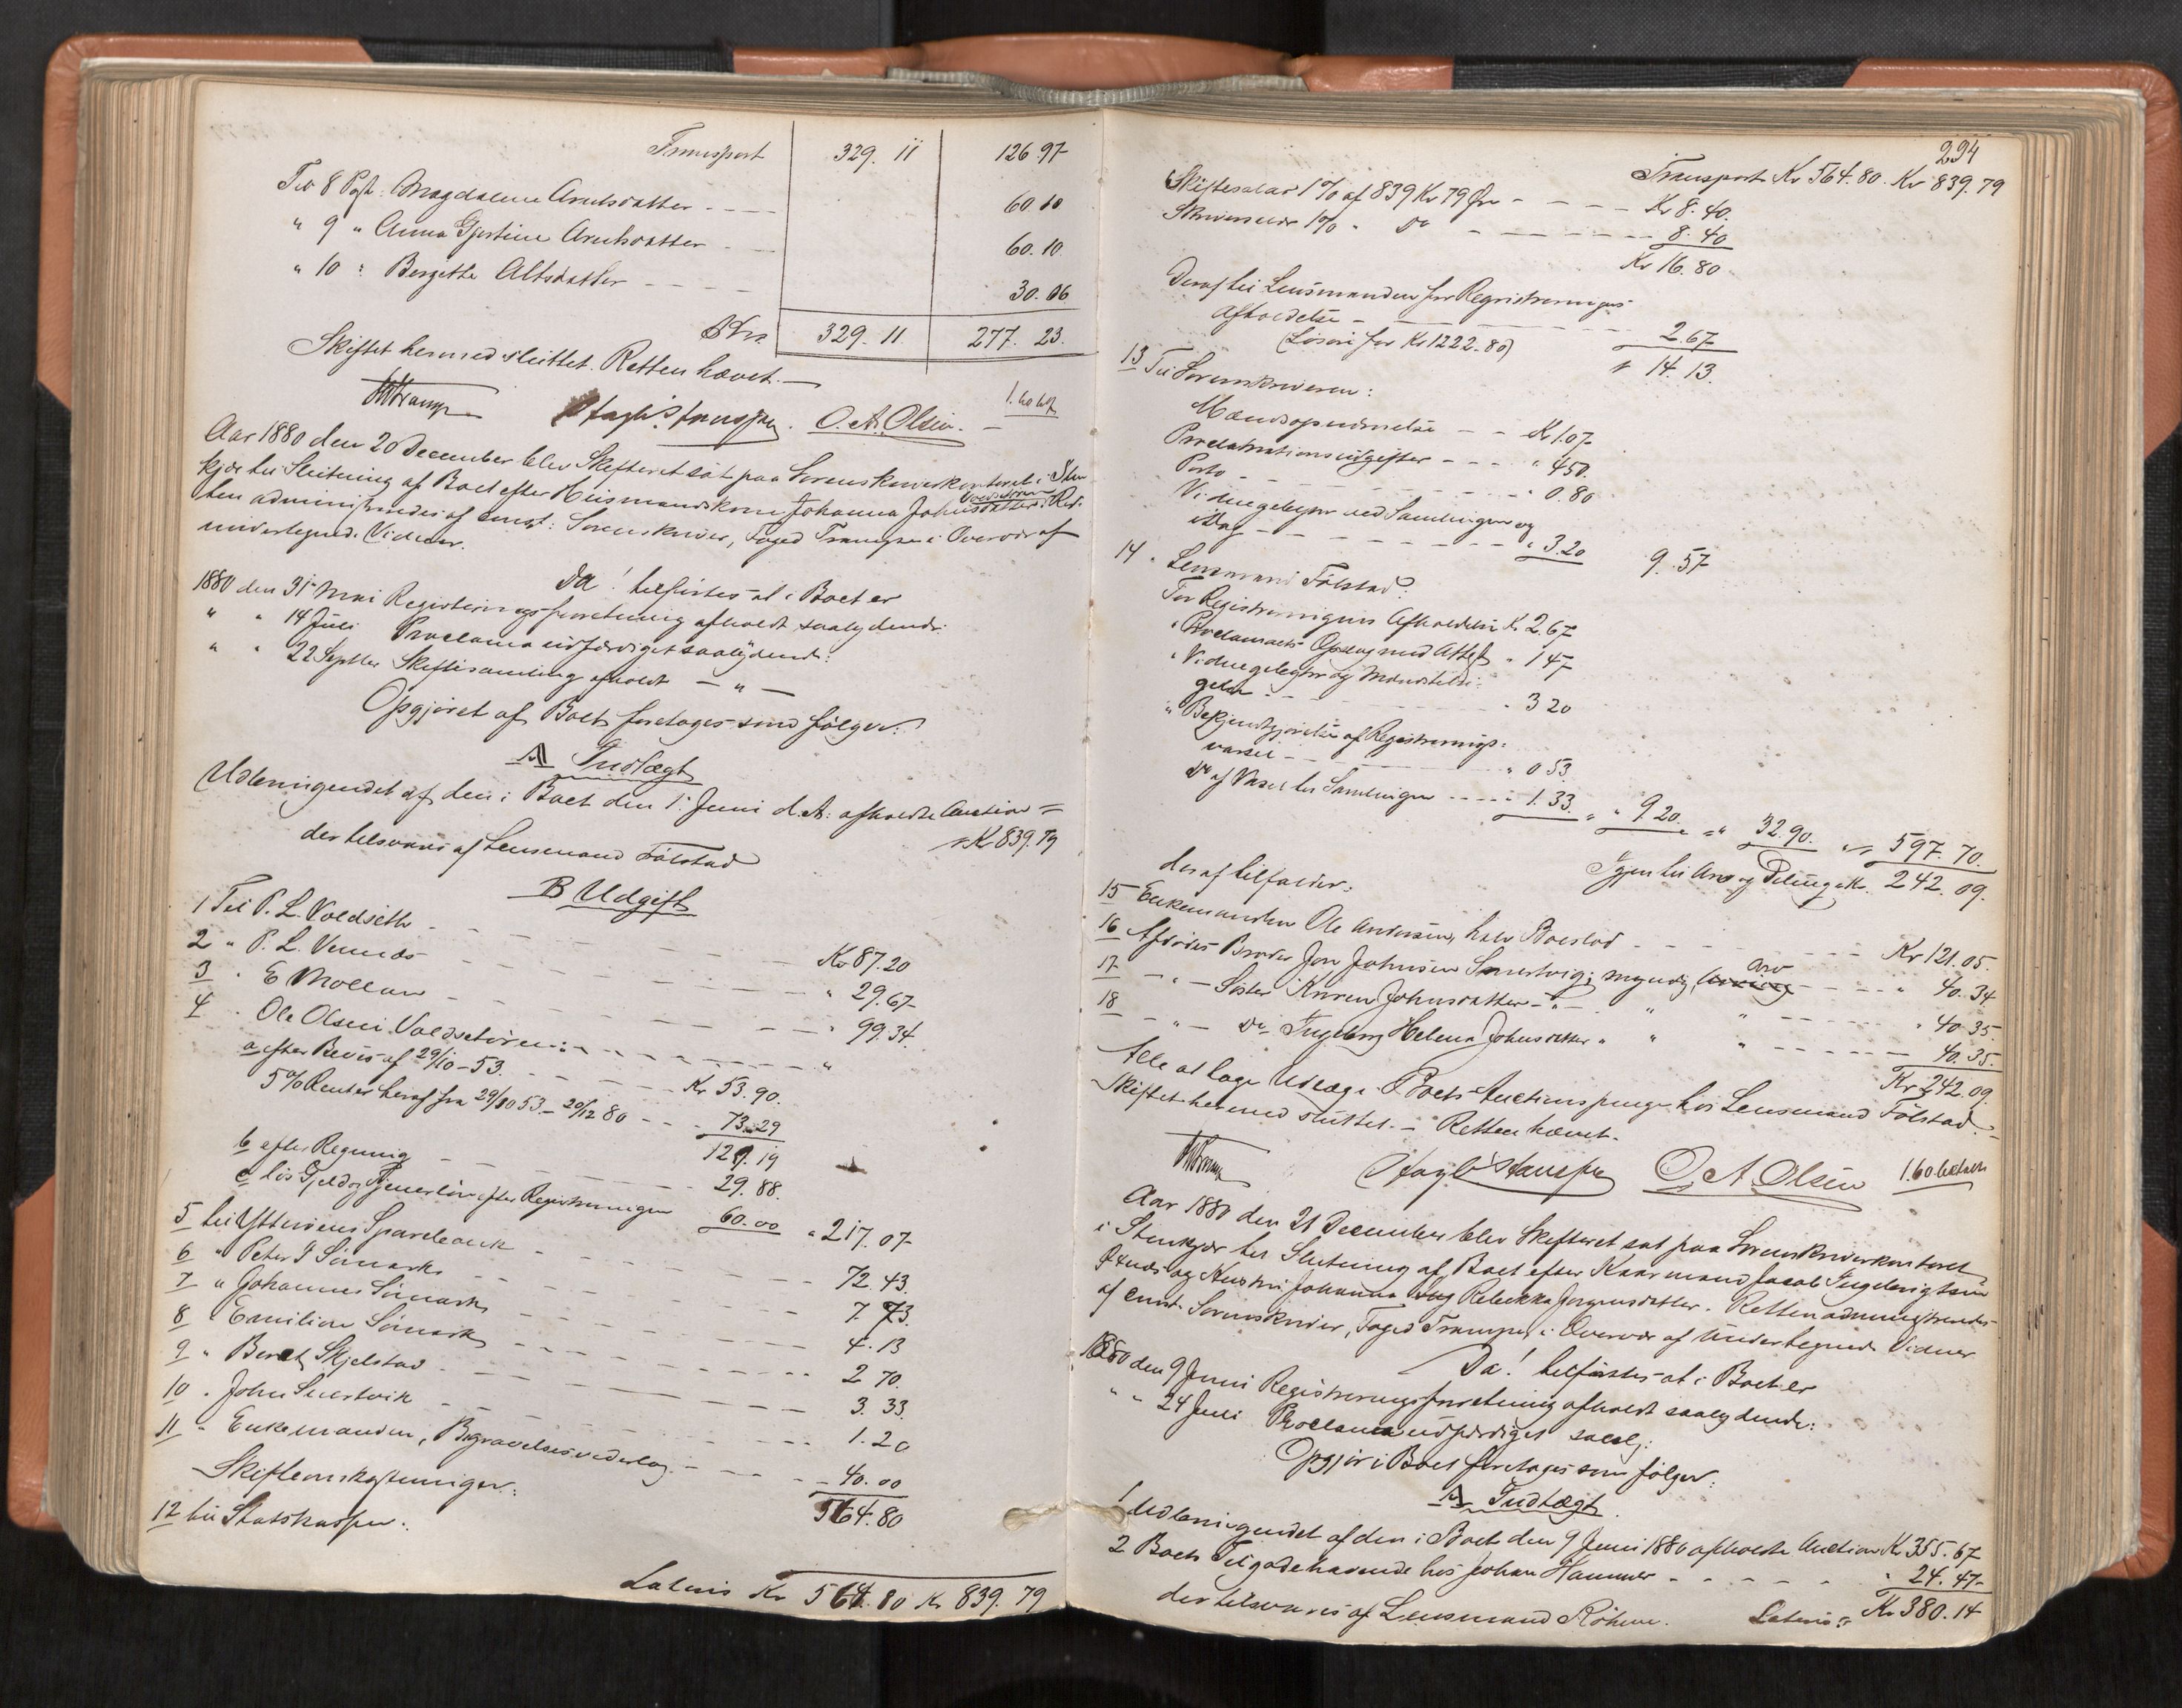 Transport 329. 11 126.97
Til 8 Post: Magdalena Arntsdatter - - - 60.10
" 9 " Anna Gjertine Arntsdatter - - 60.10
" 10 " Bergitte Altsdatter - - - - 30.06
Kr 329. 11. 277. 23.
Skiftet hermed sluttet. Retten hævet. —
O. A. Olsen. — 1.60 bet
Aar 1880 den 20 December blev Skifteret sat paa Sorenskriverkontoret i Sten
kjær til Slutning af Boet efter Husmandskone Johanna Johnsdatter Voldsetøren. Ret-
ten administreredes af const: Sorenskriver, Foged Trampe i Overvær af
undertegnede Vidner.
Da! tilførtes at i Boet er
1880 den 31 Mai Registeringsforretning afholdt saalydende:
" " 14 Juli Proclama udfærdiget saalydende:
" " 22 Septber Skiftesamling afholdt — " —
Opgjøret af Boet foretages som følger:
A Indtægt
Udbringendet af den i Boet den 1. Juni d. A. afholdte Auction =
der tilsvares af Lensmand Følstad Kr 839.79
B Udgift
1 Til P. L. Voldseth - - - - - Kr 87.20
2 " P. L. Vennes - - - - - " 29.67
3 " E Mollan - - - - - " 99.34
4 " Ole Olsen Voldsetøren: - - - - "
a efter Bevis af 29/10-53. - - - Kr 53.90.
5% Renter heraf fra 29/10 53 - 20/12 80 - - 73.29
127.19
b efter Regning - - - - 29.88.
c løs Gjeld og Tjenerløn efter Registreringen 60.00 " 217.07
5 til Ytterøens Sparebank - - - - 72.43.
6 " Peter I Sømark - - - - 7.73.
7 " Johannes Sømark - - - - 4.13
8 " Emilian Sømark - - - - 2 70.
9 " Beret Skjelstad - - - - 3. 33.
10 " John Snertvik - - - - 1.20
11 " Enkemanden, Begravelsesvederlag - - - 40.00
Skifteomkostninger: 564.80
12 til Statskassen:
Lateris Kr 564.80 Kr 839.79
294
Transport Kr 564.80. Kr 839.79
Skiftesalær 1% af 839 Kr 79 Øre - - - - Kr 8.40.
Skriversalær 1% " Do - - - - - 8.40
Kr 16.80
Deraf til Lensmanden for Registreringens
Afholdelse - - - - - 2.67
(Løsøre for Kr 1222.80) " 14. 13.
13 Til Sorenskriveren:
Mændsopnævnelse - - Kr 1.07
Proclamationsudgifter - - - " 4 50.
Porto - - - - - " 0.80
Vidnegebyr ved Samlingen og
idag - - - - - " 3.20 9. 57
14 " Lensmand Følstad:
For Registreringens Afholdelse Kr 2.67
" Proclamaets Opslag med Attest " 1 47
" Vidnegebyr og Mændstilsi-
gelse - - - - " 3 20
" Bekjendtgjørelse af Registrerings-
varsel - - - - " 0 53.
Do af Varsel til Samlingen - - - - 1.33. " " 9 20. " " 32.90. " " 597. 70.
Igjen til Arv og Deling Kr. 242.09.
deraf tilfalder:
15 Enkemanden Ole Andersen, halv Boeslod - - - - Kr 121.05.
16 Afdødes Broder Jon Johnsen Snertvig; myndig, Arv - - - " 40. 34
17 — " — Søster Karen Johnsdatter - " - " " - - - " 40 35.
18 — " — Do Ingeborg Helena Johnsdatter " " " - - - 40. 35.
Kr 242.09.
Alle at tage Udlæg i Boets Auctionspenge hos Lensmand Følstad. —
Skiftet hermed sluttet. — Retten hævet.
O. A. Olsen 1.60 betalt
Aar 1880 den 21 December blev Skifteret sat paa Sorenskriverkontoret
i Stenkjær til Slutning af Boet efter Kaarmand Jacob Ingebrigtsen
og Hustru Johanna Rebekka Jørgensdatter. Retten administreredes
af const. Sorenskriver, Foged Trampe, i Overvær af Undertegnede Vidner
Da! tilførtes at i Boet er
1880 den 9 Juni Registreringsforretning afholdt saalydende:
" " 24 Juli Proclama udfærdiget saalyd:
Opgjør i Boet foretages som følger:
A Indtægt.
1 Udbringendet af den i Boet den 9 Juni 1880 afholdte Auction Kr 355.67
2 Boets Tilgodehavende hos Johan Hammer - - - - " 24. 47
der tilsvares af Lensmand Røhme. Lateris Kr 380.14